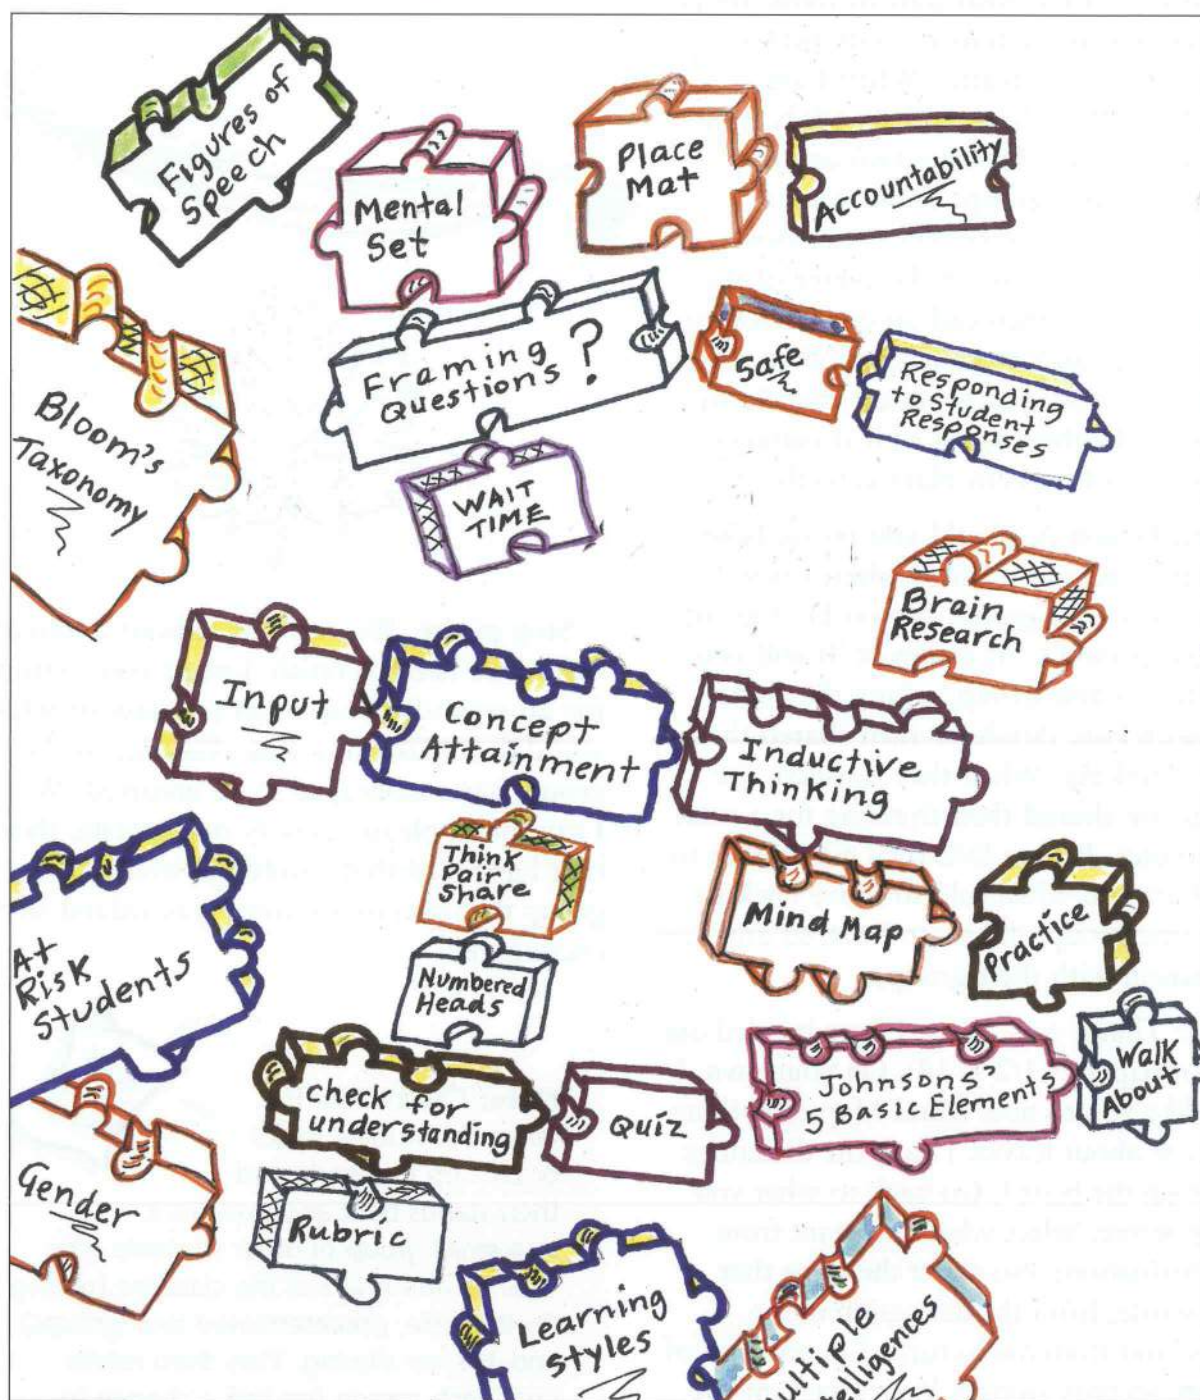 Figures of
Speech
Mental
Set
Place
Mat
Accountability
Framing
Questions ?
Safe
Responding
to Student
Responses
Bloom's
Taxonomy
WAIT
TIME
Brain
Research
Input
Concept
Attainment
Inductive
Thinking
Think
Pair
Share
Mind Map
Practice
At
Risk
Students
Numbered
Heads
check for
understanding
Quiz
Johnsons'
5 Basic Elements
Walk
About
Gender
Rubric
Learning
styles
ultiple
elligences